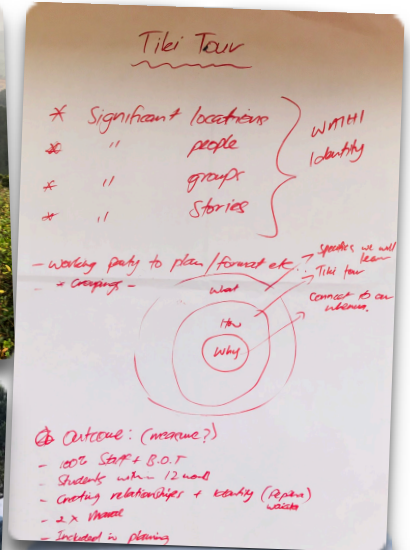 Tiki Tour
* Significant locations
* " people
* " groups
* " Stories
WAIHI
Identity
- Working party to plan / format etc..
- * Groupings -
Specifics we will
learn
Tiki tour
Connect to our
What
How
Why
Outcome: (measure?)
- 100% Staff + B.O.T
- Students within 12
- Creating relationships + identity
- 2 x
- Included in planning